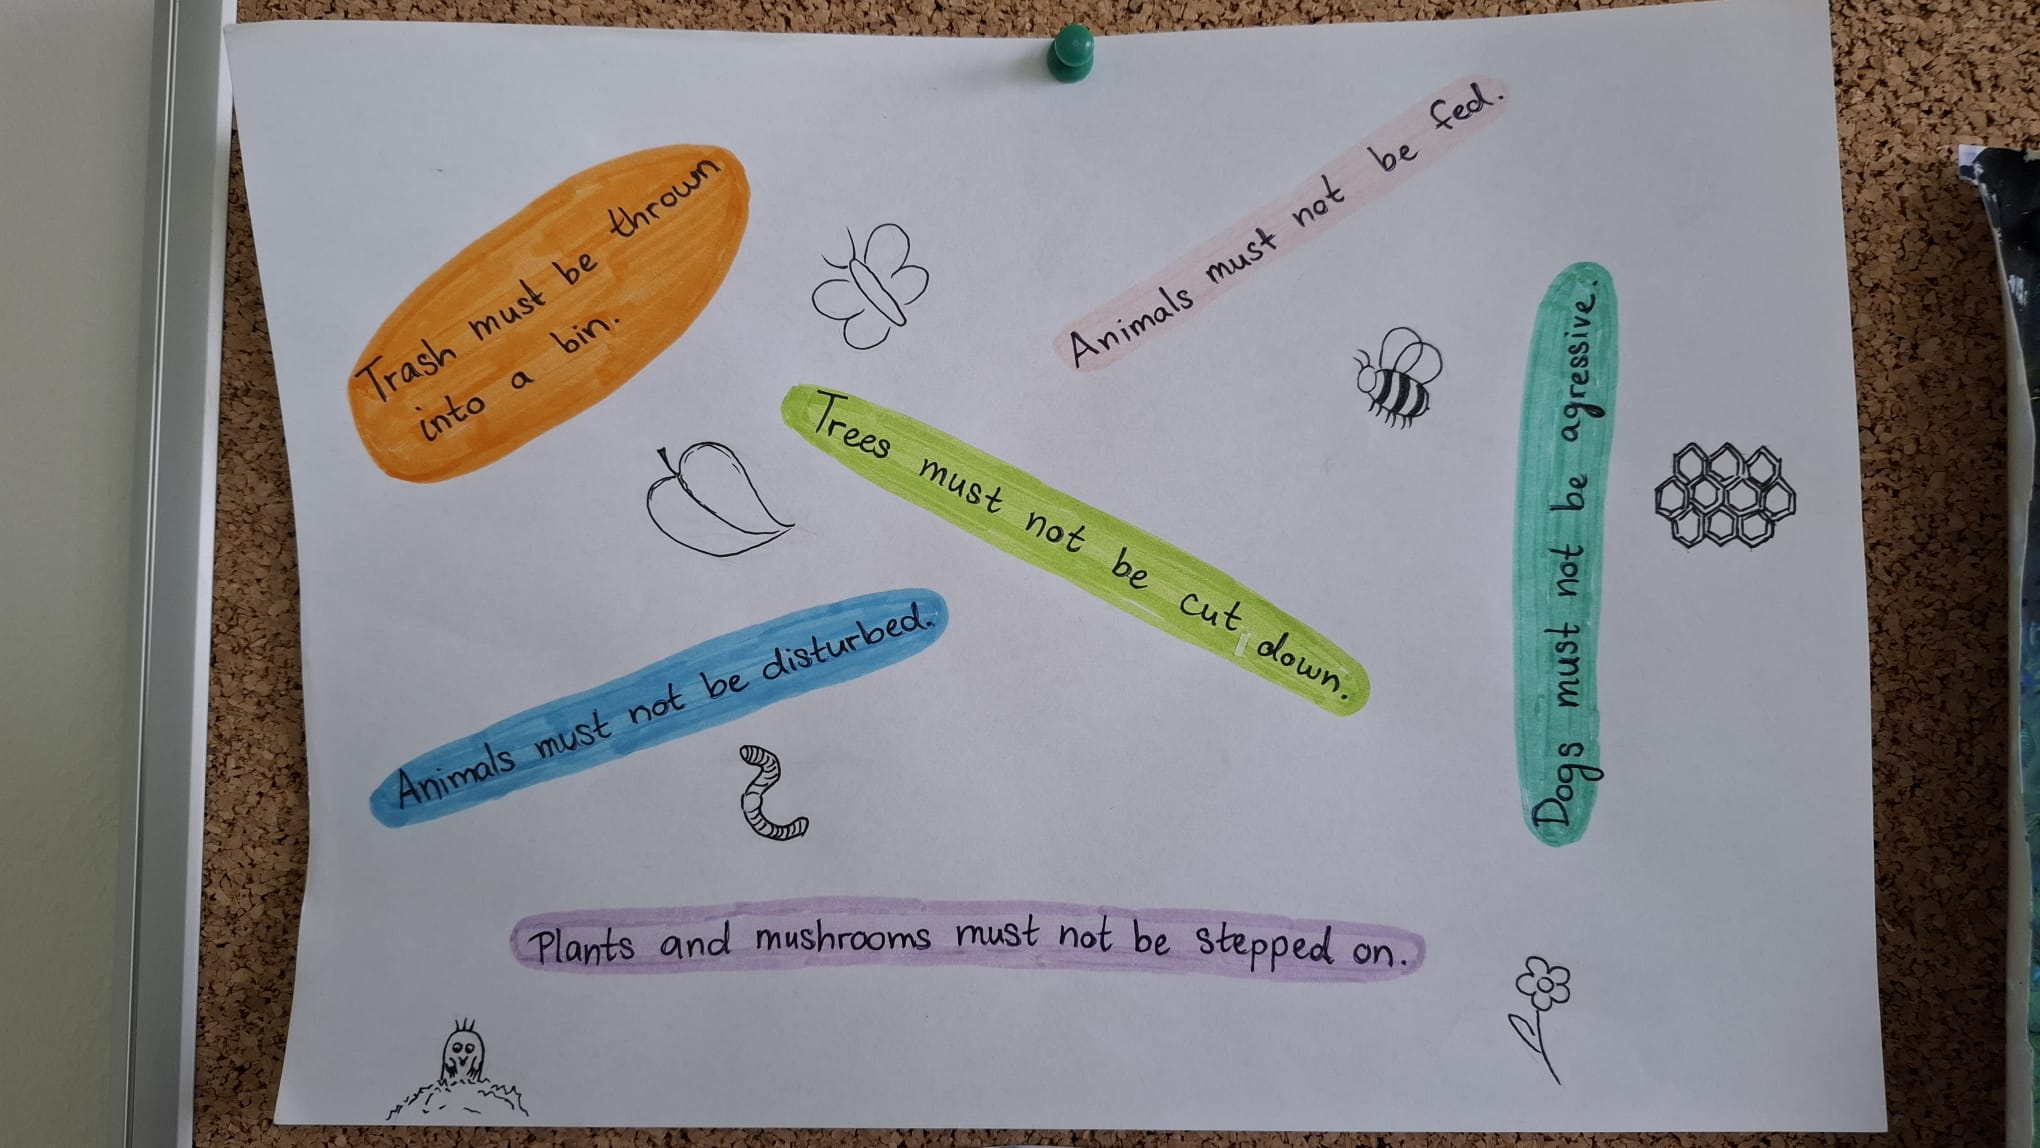 Trash must be thrown
into a bin.
Animals must not be fed.
Trees must not be cut down.
Dogs must not be agressive.
Animals must not be disturbed.
Plants and mushrooms must not be stepped on.